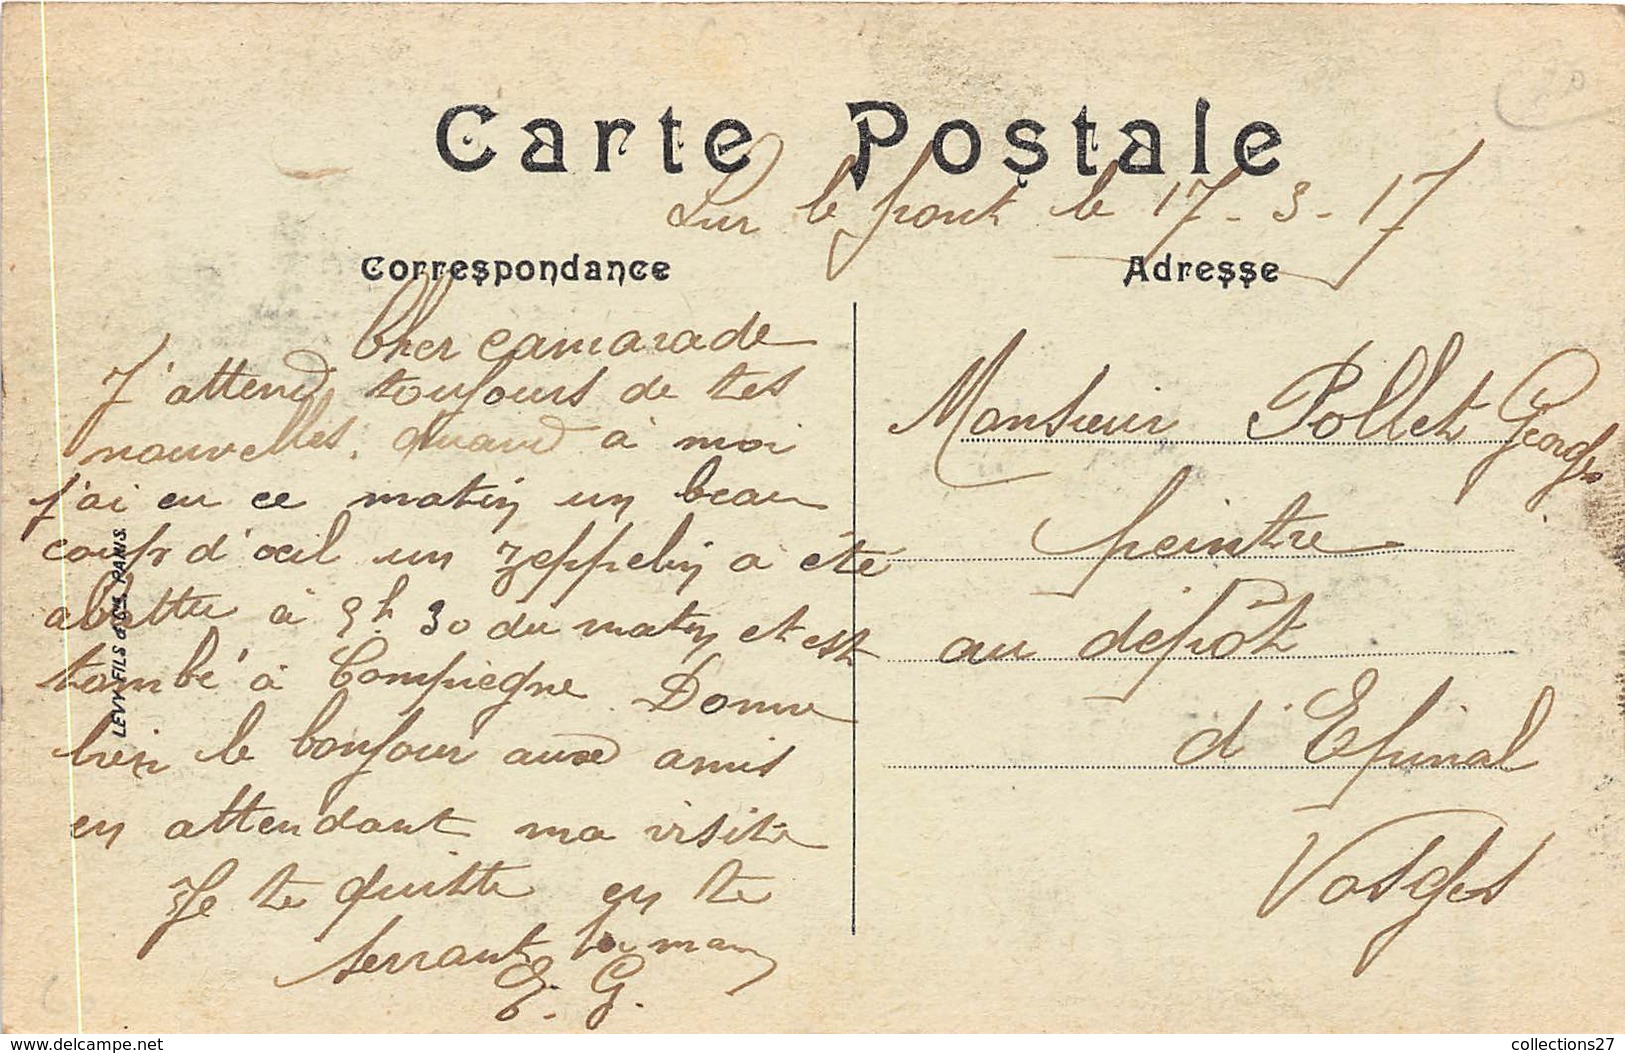 Carte Postale
Sur le front le 17-3-17
Correspondance
Adresse
Cher camarade
J'attend toujours de tes
nouvelles. quand à moi
j'ai eu ce matin un beau
coup d'œil un zeppelin a été
abattu à 5h 30 du matin et est
tombé à Compiegne Donne
bien le bonjour aux amis
en attendant ma visite
Je te quitte en te
serrant la main
E. G.
Monsieur Pollet Georges
peintre
au dépôt
d'Epinal
Vosges
LEVY FILS & Cie PARIS.
delcampe.net
collections27